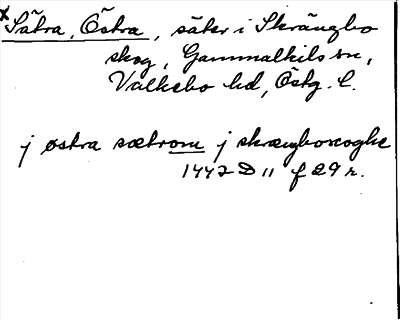 x Sätra, Östra, säter i Skrängbo
skog, Gammalkils sn,
Valkebo hd, Östg. l.
j østra sætrom j skængboscoghe
1447 D 11 f 29 r.